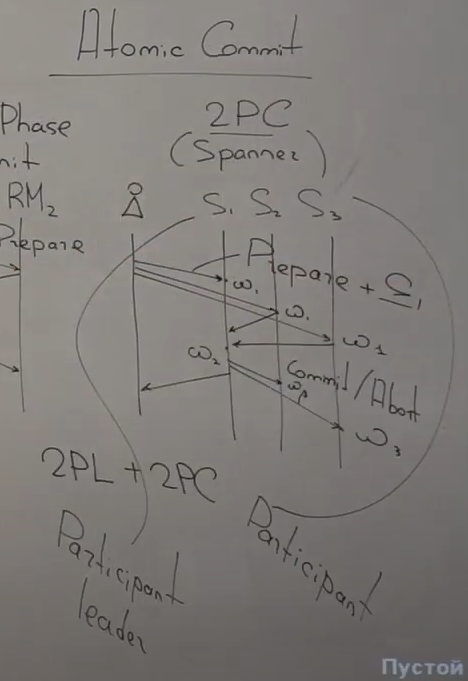 Atomic Commit
Phase
nit
RM₂
Prepare
2PC
(Spanner)
S₁ S₂ S₃
Prepare + S₁
ω₁
ω₁
ω₁
ω₂
Commit/Abort
ω₃
ω₃
2PL + 2PC
Participant
leader
Participant
Пустой